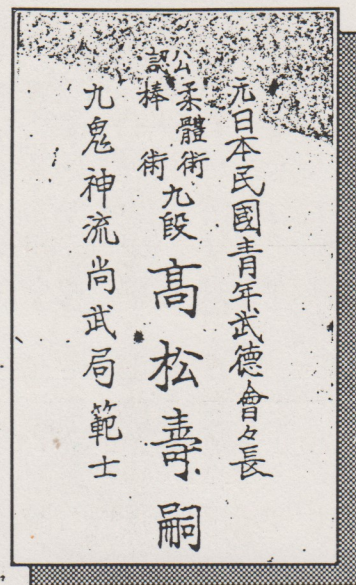 元日本民國青年武德會々長
公認
柔體術
棒術
九段
髙松壽嗣
九鬼神流尚武局範士